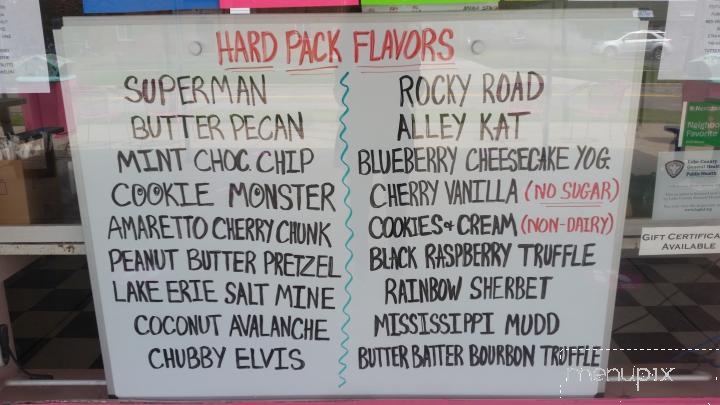 HARD PACK FLAVORS
SUPERMAN
BUTTER PECAN
MINT CHOC. CHIP
COOKIE MONSTER
AMARETTO CHERRY CHUNK
PEANUT BUTTER PRETZEL
LAKE ERIE SALT MINE
COCONUT AVALANCHE
CHUBBY ELVIS
ROCKY ROAD
ALLEY KAT
BLUEBERRY CHEESECAKE YOG.
CHERRY VANILLA (NO SUGAR)
COOKIES & CREAM (NON-DAIRY)
BLACK RASPBERRY TRUFFLE
RAINBOW SHERBET
MISSISSIPPI MUDD
BUTTER BATTER BOURBON TRUFFLE
Nextdoor
Neighborhood
Favorite
Lake County
General Health
Public Health
GIFT CERTIFICA
AVAILABLE
menupix